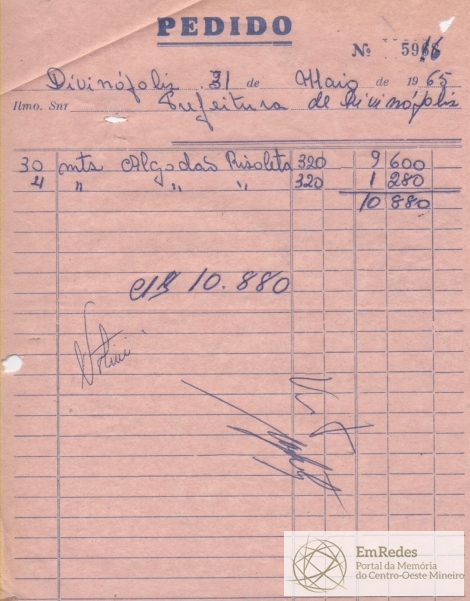 PEDIDO
Nº 5916
Divinópolis 31 de Maio de 1965
Ilmo. Snr Prefeitura de Divinópolis
30 mts Algodão Risoleta 320 9 600
4 " " " 320 1 280
10 880
10.880
EmRedes
Portal da Memória
do Centro-Oeste Mineiro